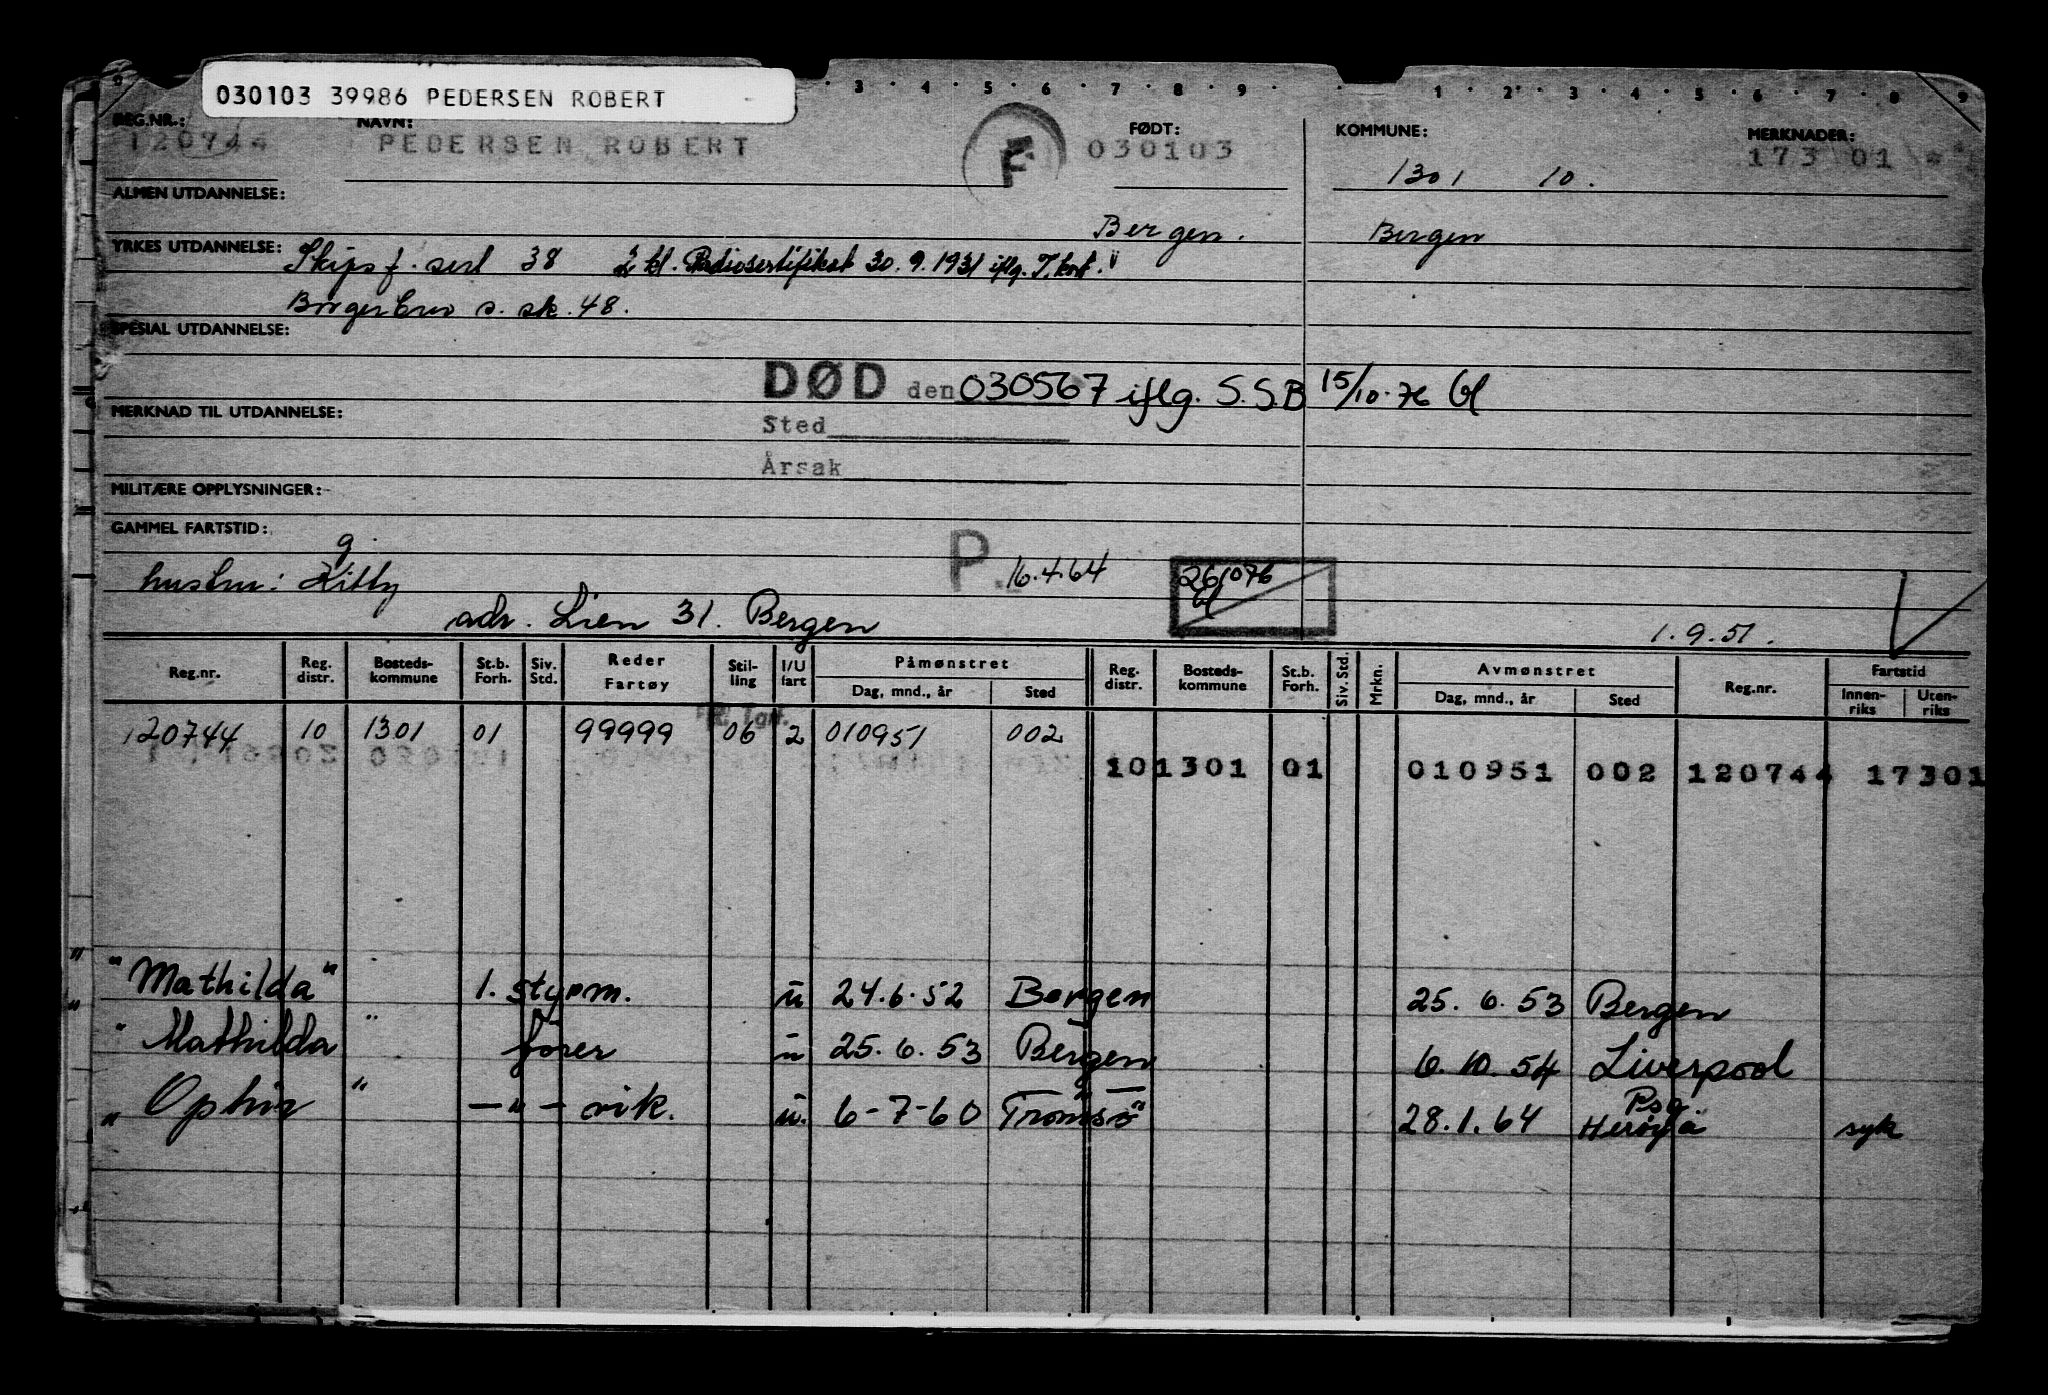 030103 39986 PEDERSEN ROBERT
3 4 5 6 7 8 9 1 2 3 4 5 6 7 8 9
REG.NR.: NAVN: FØDT: KOMMUNE: MERKNADER:
120744 PEDERSEN ROBERT F 030103 1301 10. 173 01 *
ALMEN UTDANNELSE:
Bergen. Bergen
YRKES UTDANNELSE: Skipsf. sert 38 2 kl. Radiosertifikat 30.9.1931 iflg. T.kort.
Borgerbrev s. sk. 48.
SPESIAL UTDANNELSE:
DØD den 030567 iflg. S.S.B 15/10-76 bl
MERKNAD TIL UTDANNELSE:
Sted
Årsak
MILITÆRE OPPLYSNINGER:
GAMMEL FARTSTID:
g.
hustru: Kitty P. 16.4.64 261076 bl
adr. Lien 31. Bergen 1.9.51.
Reg.nr. Reg. distr. Bosteds-kommune St.b. Forh. Siv. Std. Reder Fartøy Stil-ling I/U fart Påmønstret Dag, mnd., år Sted Reg. distr. Bosteds-kommune St.b. Forh. Siv. Std. Mrkn. Avmønstret Dag, mnd., år Sted Reg.nr. Fartstid Innen-riks Uten-riks
120744 10 1301 01 99999 06 2 010951 002
101301 01 010951 002 120744 17301
"Mathilda" 1. styrm. u 24.6.52 Bergen 25.6.53 Bergen
"Mathilda" fører u 25.6.53 Bergen 6.10.54 Liverpool
"Ophir" —"— vik. u. 6-7-60 Tromsö 28.1.64 Psg. Herøya syk